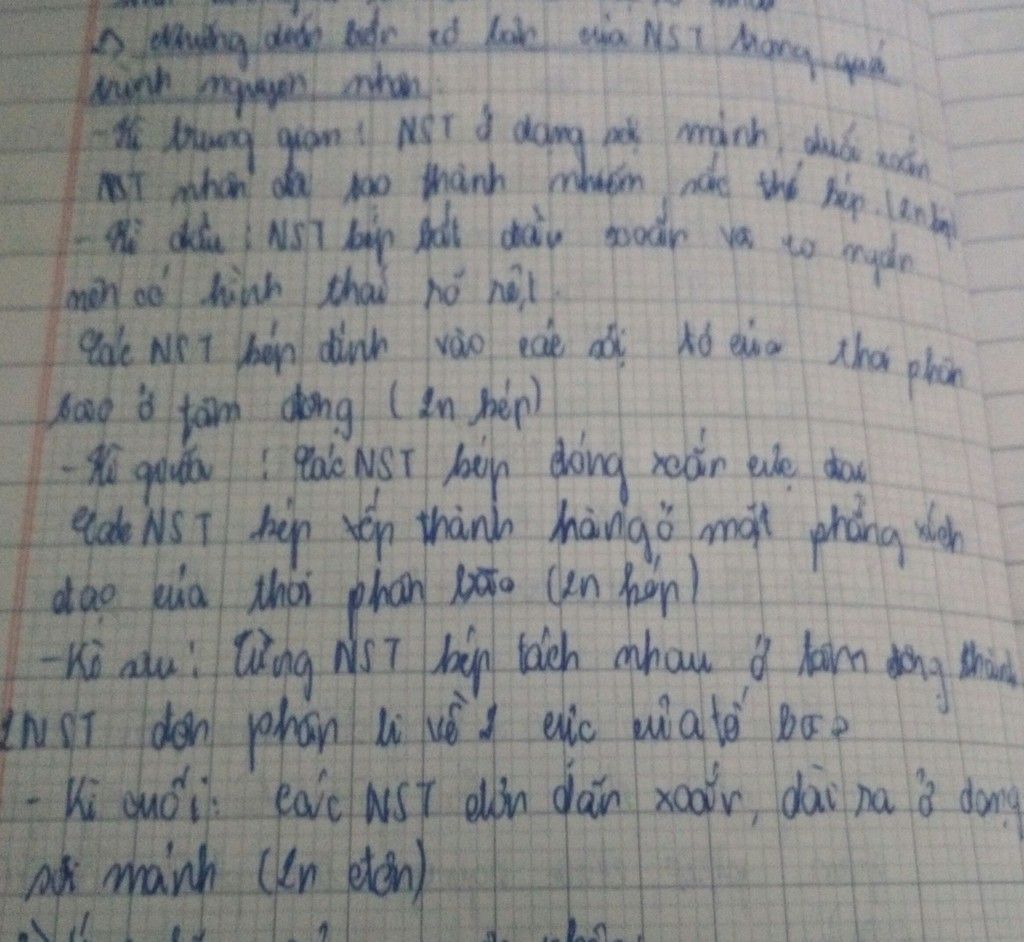 Những diễn biến cơ bản của NST trong quá
trình nguyên nhân.
- Kì trung gian: NST ở dạng sợi mảnh, duỗi xoắn
NST nhân đôi tạo thành nhiễm sắc thể kép (2n kép)
- Kì đầu: NST kép bắt đầu xoắn và co ngắn
nên có hình thái rõ nét.
Các NST kép dính vào các sợi tơ của thoi phân
bào ở tâm động (2n kép)
- Kì giữa: Các NST kép đóng xoắn cực đại
Các NST kép xếp thành hàng ở mặt phẳng xích
đạo của thoi phân bào (2n kép)
- Kì sau: Từng NST kép tách nhau ở tâm động thành
2NST đơn phân li về 2 cực của tế bào
- Kì cuối: các NST đơn dãn xoắn, dài ra ở dạng
sợi mảnh (2n đơn)